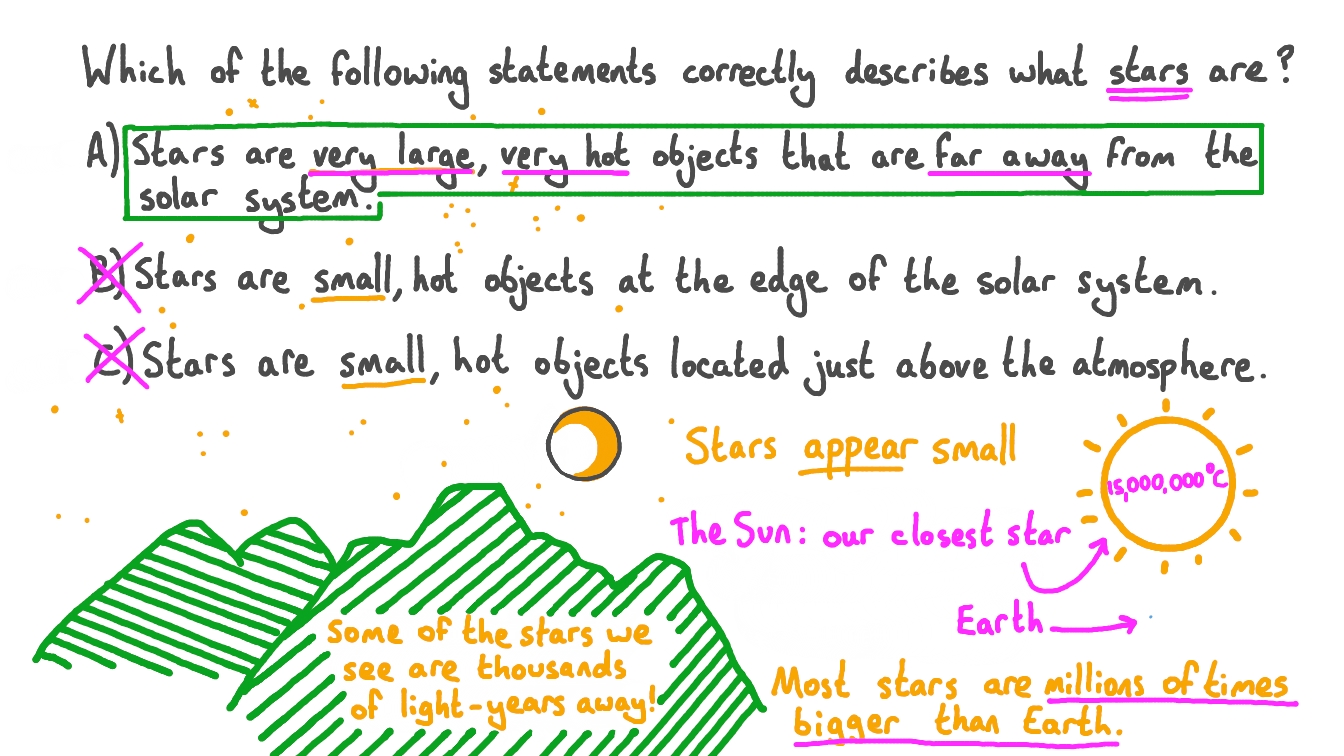 Which of the following statements correctly describes what stars are?
A) Stars are very large, very hot objects that are far away from the
solar system.
B) Stars are small, hot objects at the edge of the solar system.
C) Stars are small, hot objects located just above the atmosphere.
Stars appear small
15,000,000°C
The Sun: our closest star
Earth
Some of the stars we
see are thousands
of light-years away!
Most stars are millions of times
bigger than Earth.